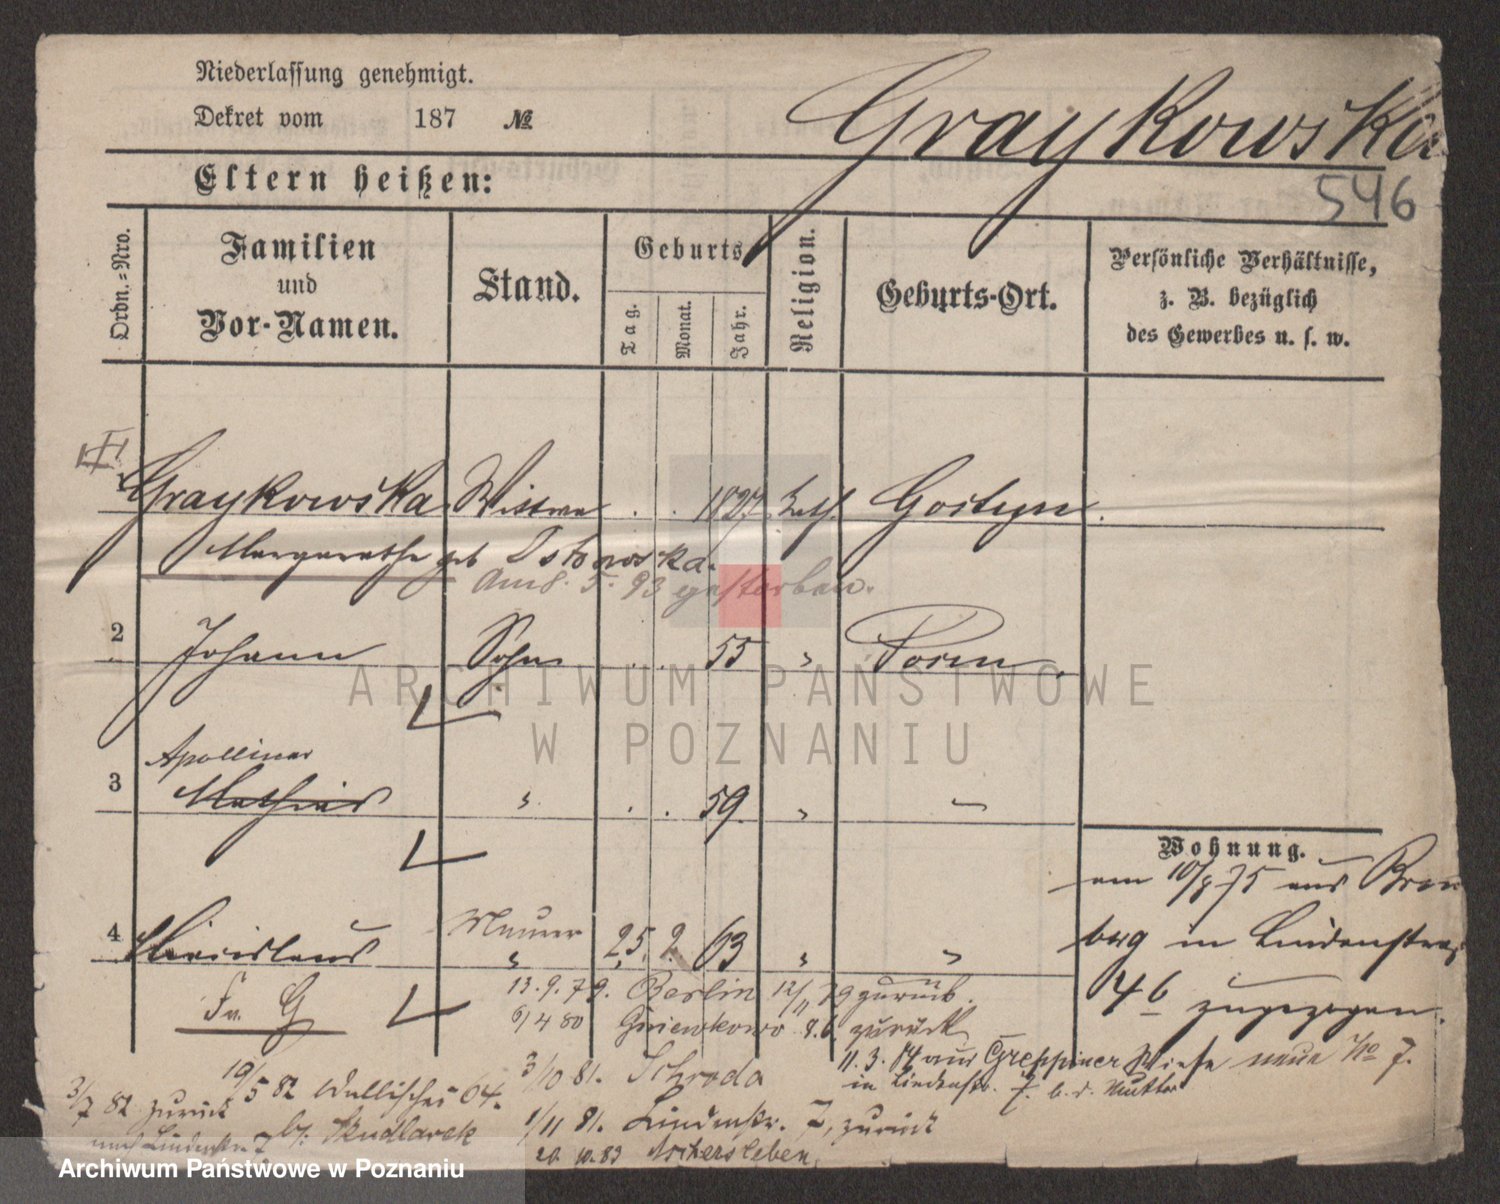 Niederlassung genehmigt.
Dekret vom 187 №
Graykowska
546
Eltern heißen:
Ordn.-Nro.
Familien
und
Vor-Namen.
Stand.
Geburts
Tag.
Monat.
Jahr.
Religion.
Geburts-Ort.
Persönliche Verhältnisse,
z. B. bezüglich
des Gewerbes u. s. w.
Graykowska Wittwe . . 1827 kath. Gostyn.
Margarethe geb Ostowska.
am 8. 5. 93 gestorben.
2 Johann Sohn . . 55 " Posen.
ARCHIWUM PAŃSTWOWE
W POZNANIU
Apollinar
3 Mathias " . . 59. " "
Wohnung.
am 10/8 75 aus
berg in Lindenstraß
4 Maurer
" 25. 2. 63 " "
4 b zugezogen.
Fr. G
13. 9. 79. Berlin 12/11 79 zurück.
6/4 80 Gniewkowo 8.6. zurück
11. 3. 84 aus Wiese neue No 7.
in Lindenstr. 7. b. d. Mutter
3/10 81. Schroda
19/5 82 Wallischei 64.
3/7 82 zurück
bei Skudlarek
nach Lindenstr. 7
1/11 81. Lindenstr. 7, zurück
20. 10. 83 Aschersleben,
Archiwum Państwowe w Poznaniu